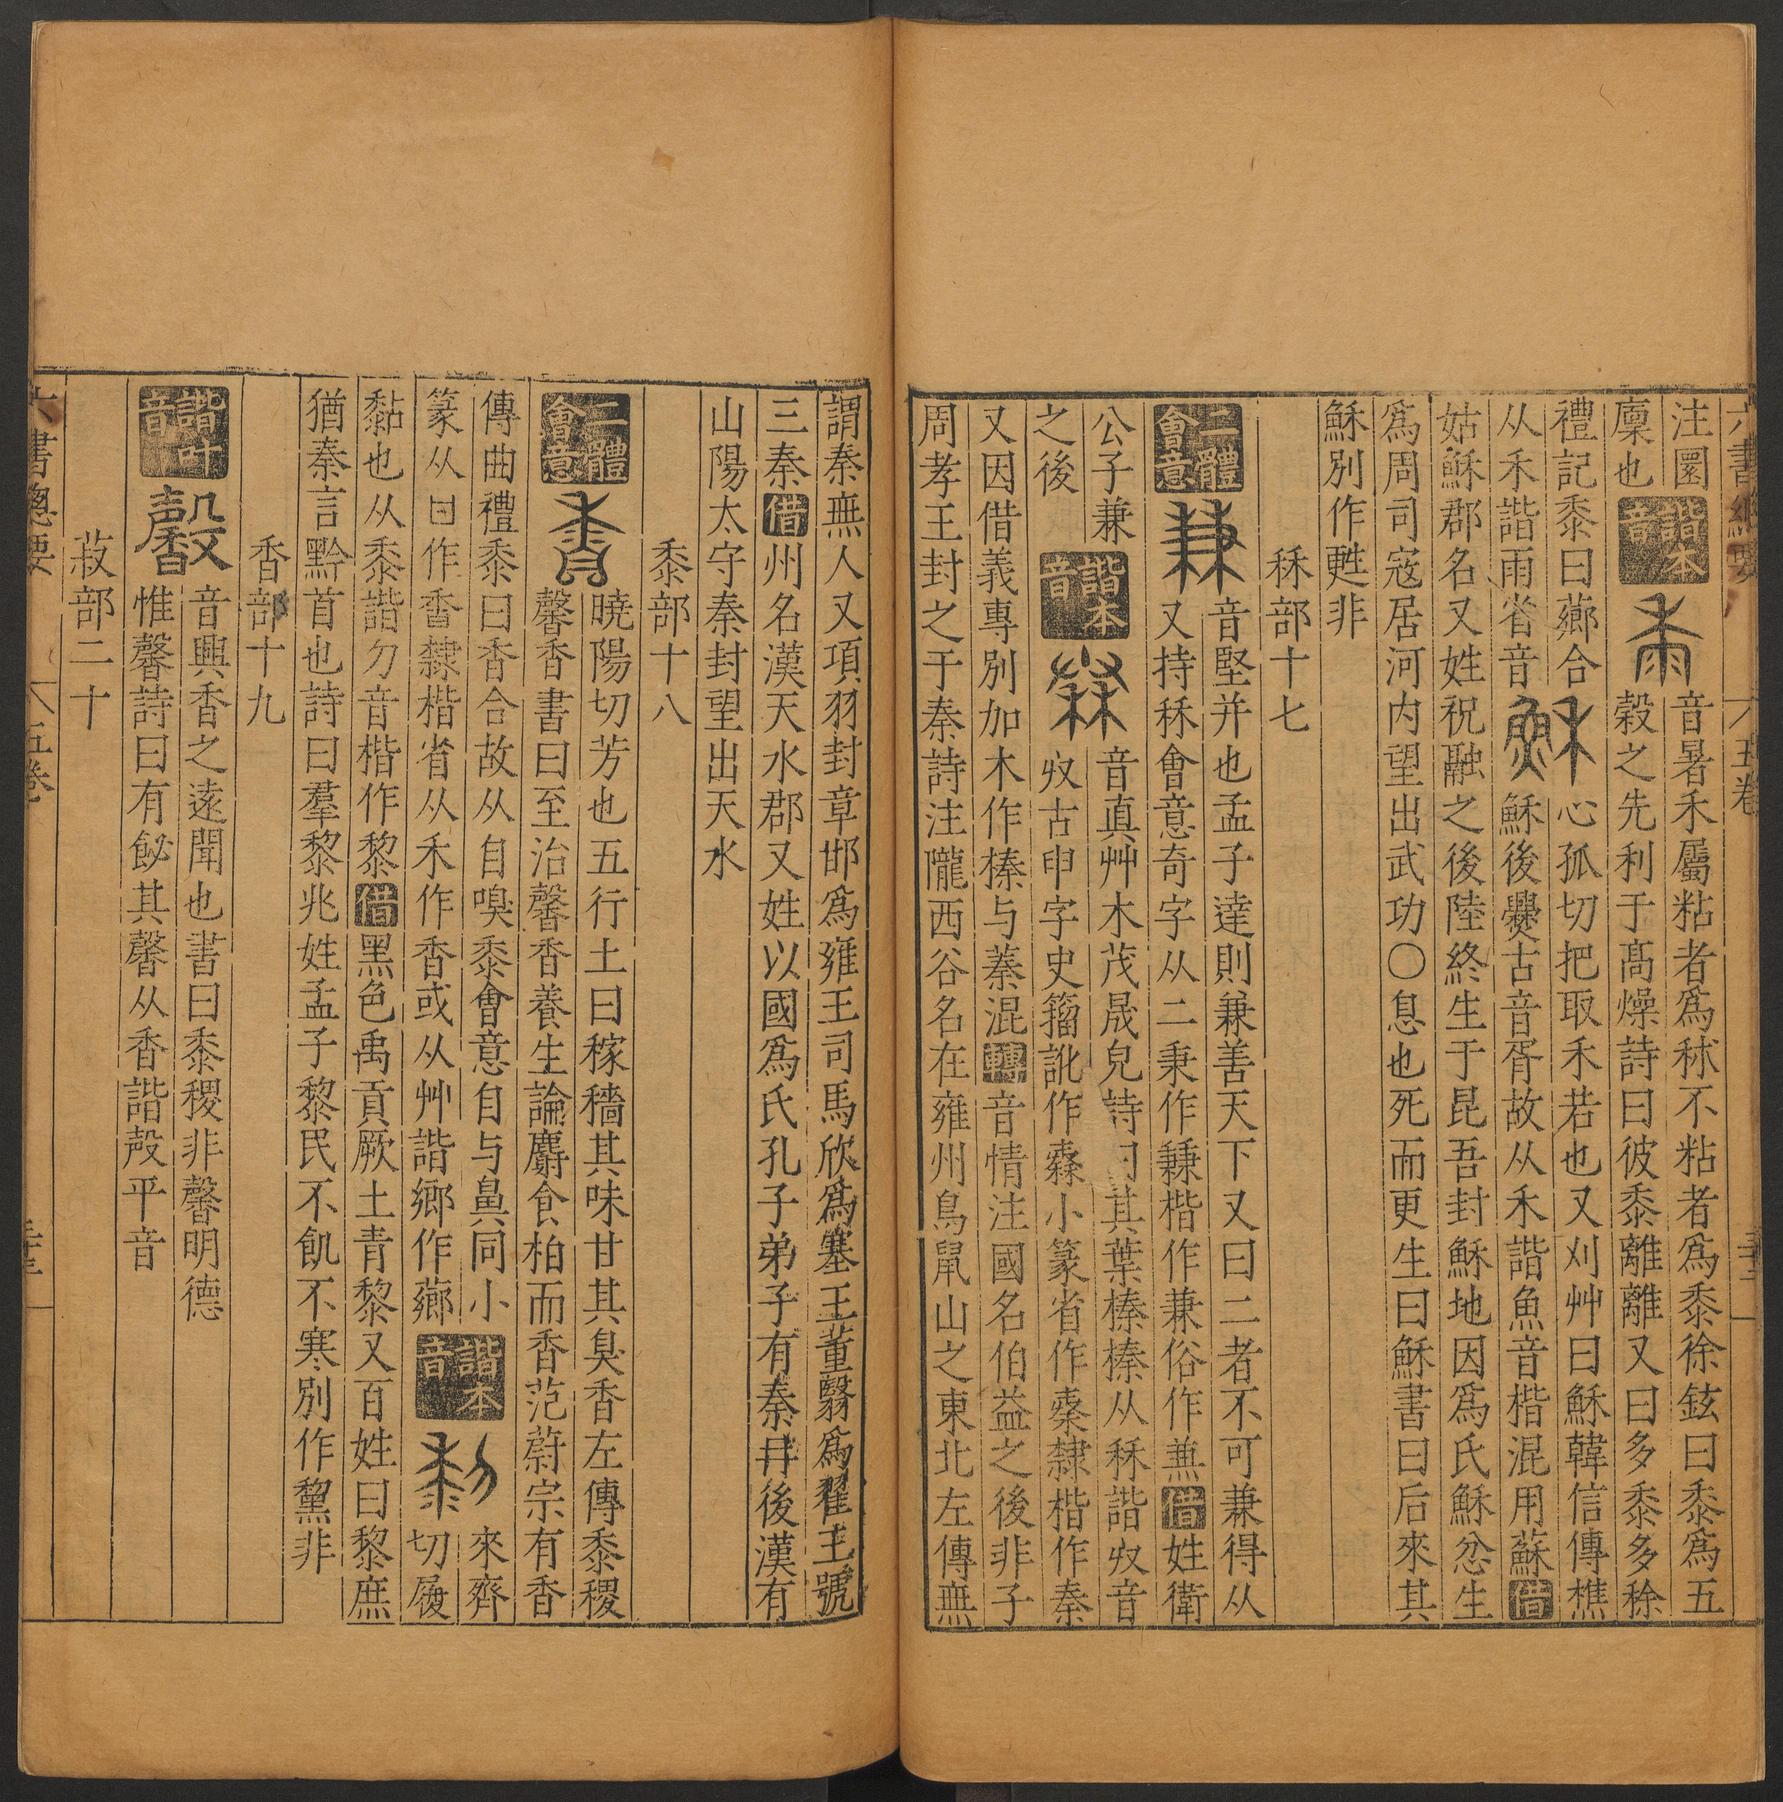 六書總要 五卷
注圂
廩也
諧本音
音暑禾屬粘者爲秫不粘者爲黍徐鉉曰黍爲五
穀之先利于高燥詩曰彼黍離離又曰多黍多稌
禮記黍曰薌合
从禾諧雨省音
穌
心孤切把取禾若也又刈艸曰穌韓信傳樵
穌後爨古音胥故从禾諧魚音楷混用蘇借
姑穌郡名又姓祝融之後陸終生于昆吾封穌地因爲氏穌忿生
爲周司寇居河內望出武功○息也死而更生曰穌書曰后來其
穌別作甦非
秝部十七
二體會意
音堅并也孟子達則兼善天下又曰二者不可兼得从
又持秝會意奇字从二秉作𥡝楷作兼俗作𠔥借姓衛
公子兼
之後
諧本音
音真艸木茂晟皃詩曰其葉榛榛从秝諧𠬞音
𠬞古申字史籀訛作𥠼小篆省作𣘺隸楷作秦
又因借義專別加木作榛与蓁混轉音情注國名伯益之後非子
周孝王封之于秦詩注隴西谷名在雍州鳥鼠山之東北左傳無
謂秦無人又項羽封章邯爲雍王司馬欣爲塞王董翳爲翟王號
三秦借州名漢天水郡又姓以國爲氏孔子弟子有秦冄後漢有
山陽太守秦封望出天水
黍部十八
二體會意
曉陽切芳也五行土曰稼穡其味甘其臭香左傳黍稷
馨香書曰至治馨香養生論麝食柏而香范蔚宗有香
傳曲禮黍曰香合故从自嗅黍會意自与鼻同小
篆从甘作𪏰隸楷省从禾作香或从艸諧鄉作薌
諧本音
來齊
切履
黏也从黍諧勿音楷作黎借黑色禹貢厥土青黎又百姓曰黎庶
猶秦言黔首也詩曰羣黎兆姓孟子黎民不飢不寒別作黧非
香部十九
諧叶音
音興香之遠聞也書曰黍稷非馨明德
惟馨詩曰有飶其馨从香諧殸平音
菽部二十
六書總要 五卷